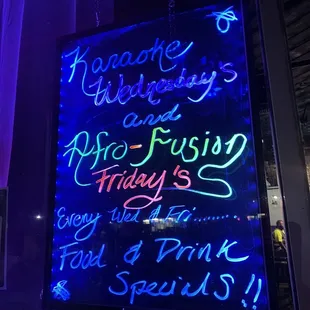 Karaoke
Wednesday's
and
Afro-Fusion
Friday's
Every Wed & Fri.......
Food & Drink
Specials!!